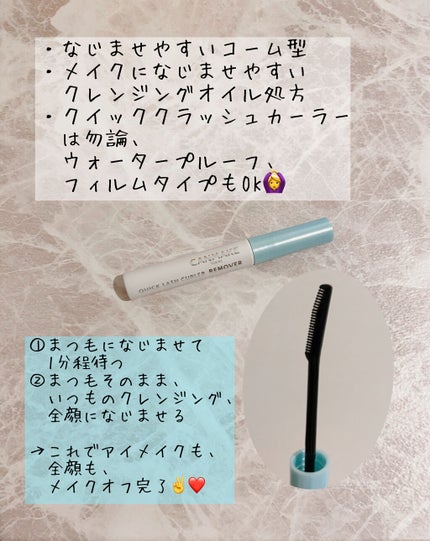 ・なじませやすいコーム型
・メイクになじませやすい
クレンジングオイル処方
・クイッククラッシュカーラー
は勿論、
ウォータープルーフ、
フィルムタイプもOK🙆‍♀️
CANMAKE
QUICK LASH CURLER REMOVER
①まつ毛になじませて
1分程待つ
②まつ毛そのまま、
いつものクレンジング、
全顔になじませる
→これでアイメイクも、
全顔も、
メイクオフ完了✌️❤️